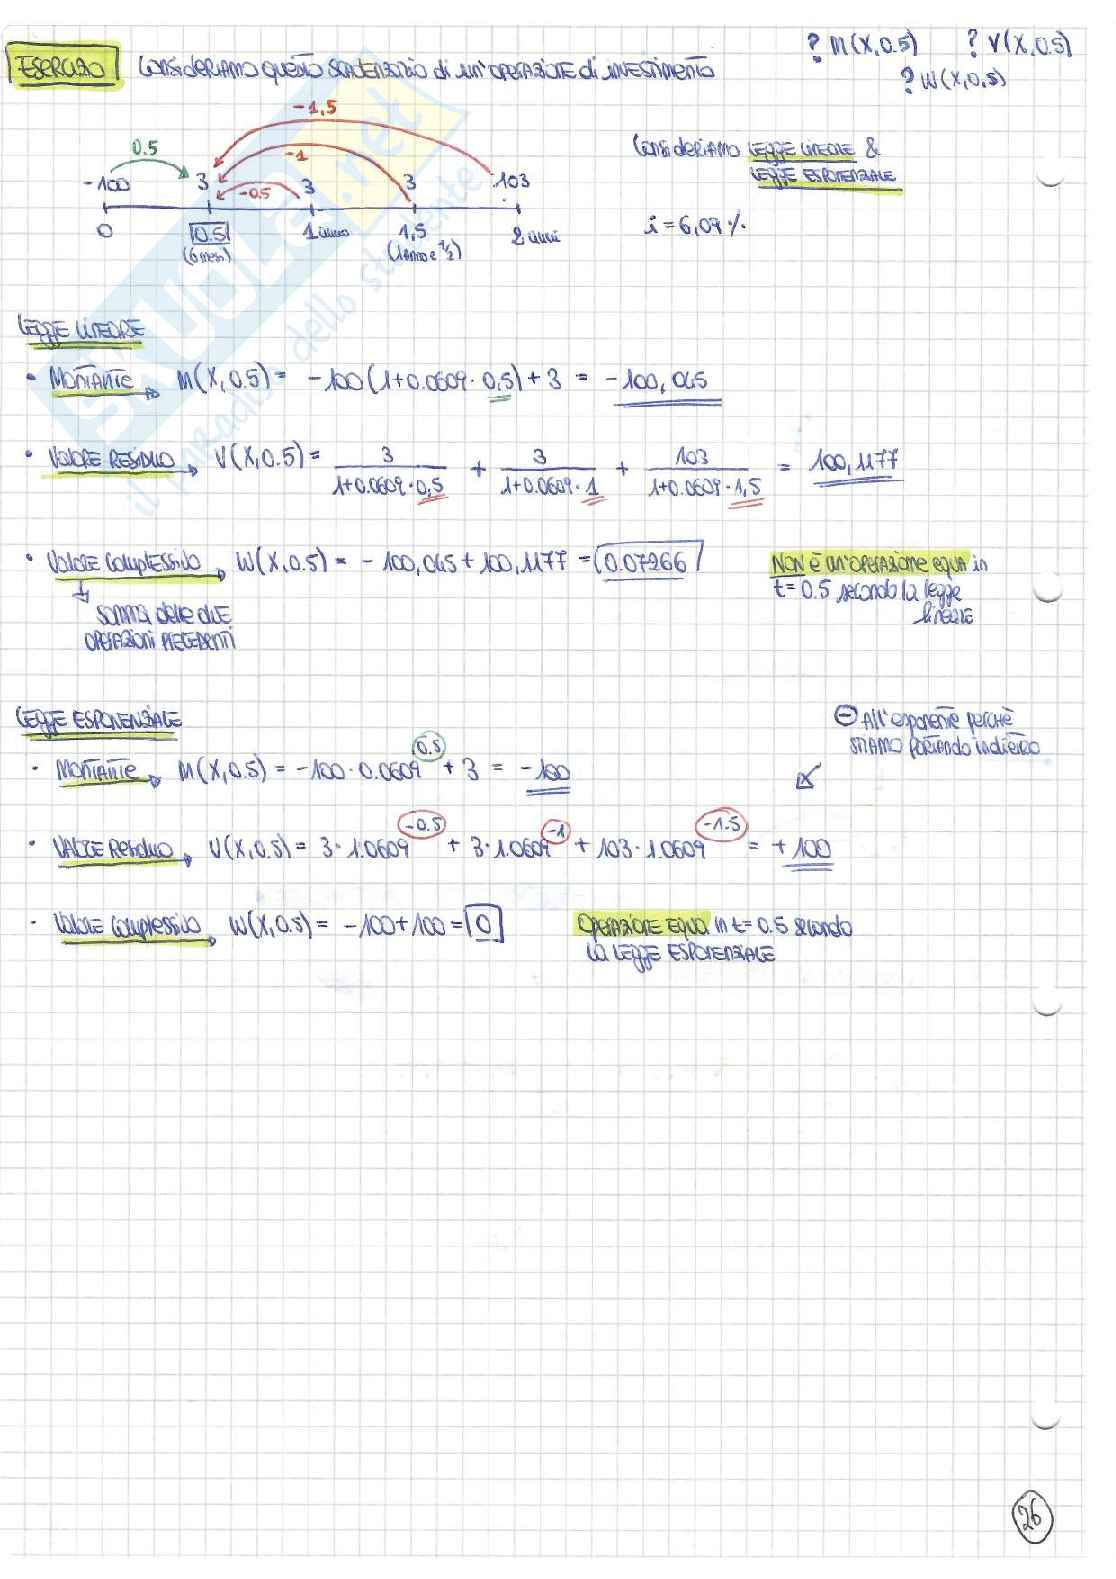 ? M(X,0.5) ? V(X,0.5)
? W(X,0.5)
ESERCIZIO Consideriamo questo scadenzario di un'operazione di investimento
-1,5
0.5 -1
-100 3 -0.5 3 3 103
0 0.5 1 anno 1,5 2 anni
(6 mesi) (1 anno e 1/2)
Consideriamo LEGGE LINEARE &
LEGGE ESPONENZIALE
i = 6,09 %
LEGGE LINEARE
• MONTANTE → M(X,0.5) = -100(1+0.0609·0,5)+3 = -100,045
• VALORE RESIDUO → V(X,0.5) = 3/(1+0.0609·0,5) + 3/(1+0.0609·1) + 103/(1+0.0609·1,5) = 100,1177
• VALORE COMPLESSIVO → W(X,0.5) = -100,045+100,1177 = 0.07266
SOMMA DELLE DUE
OPERAZIONI PRECEDENTI
NON è un'OPERAZIONE EQUA in
t=0.5 secondo la legge
lineare
LEGGE ESPONENZIALE
- MONTANTE → M(X,0.5) = -100·0.0609^0.5 + 3 = -100
• VALORE RESIDUO → V(X,0.5) = 3·1.0609^-0.5 + 3·1.0609^-1 + 103·1.0609^-1.5 = +100
- VALORE COMPLESSIVO → W(X,0.5) = -100+100 = 0
⊖ All'esponente perchè
STIAMO PORTANDO indietro
OPERAZIONE EQUA in t=0.5 secondo
LA LEGGE ESPONENZIALE
26
SKUOLA.net
il paradiso dello studente